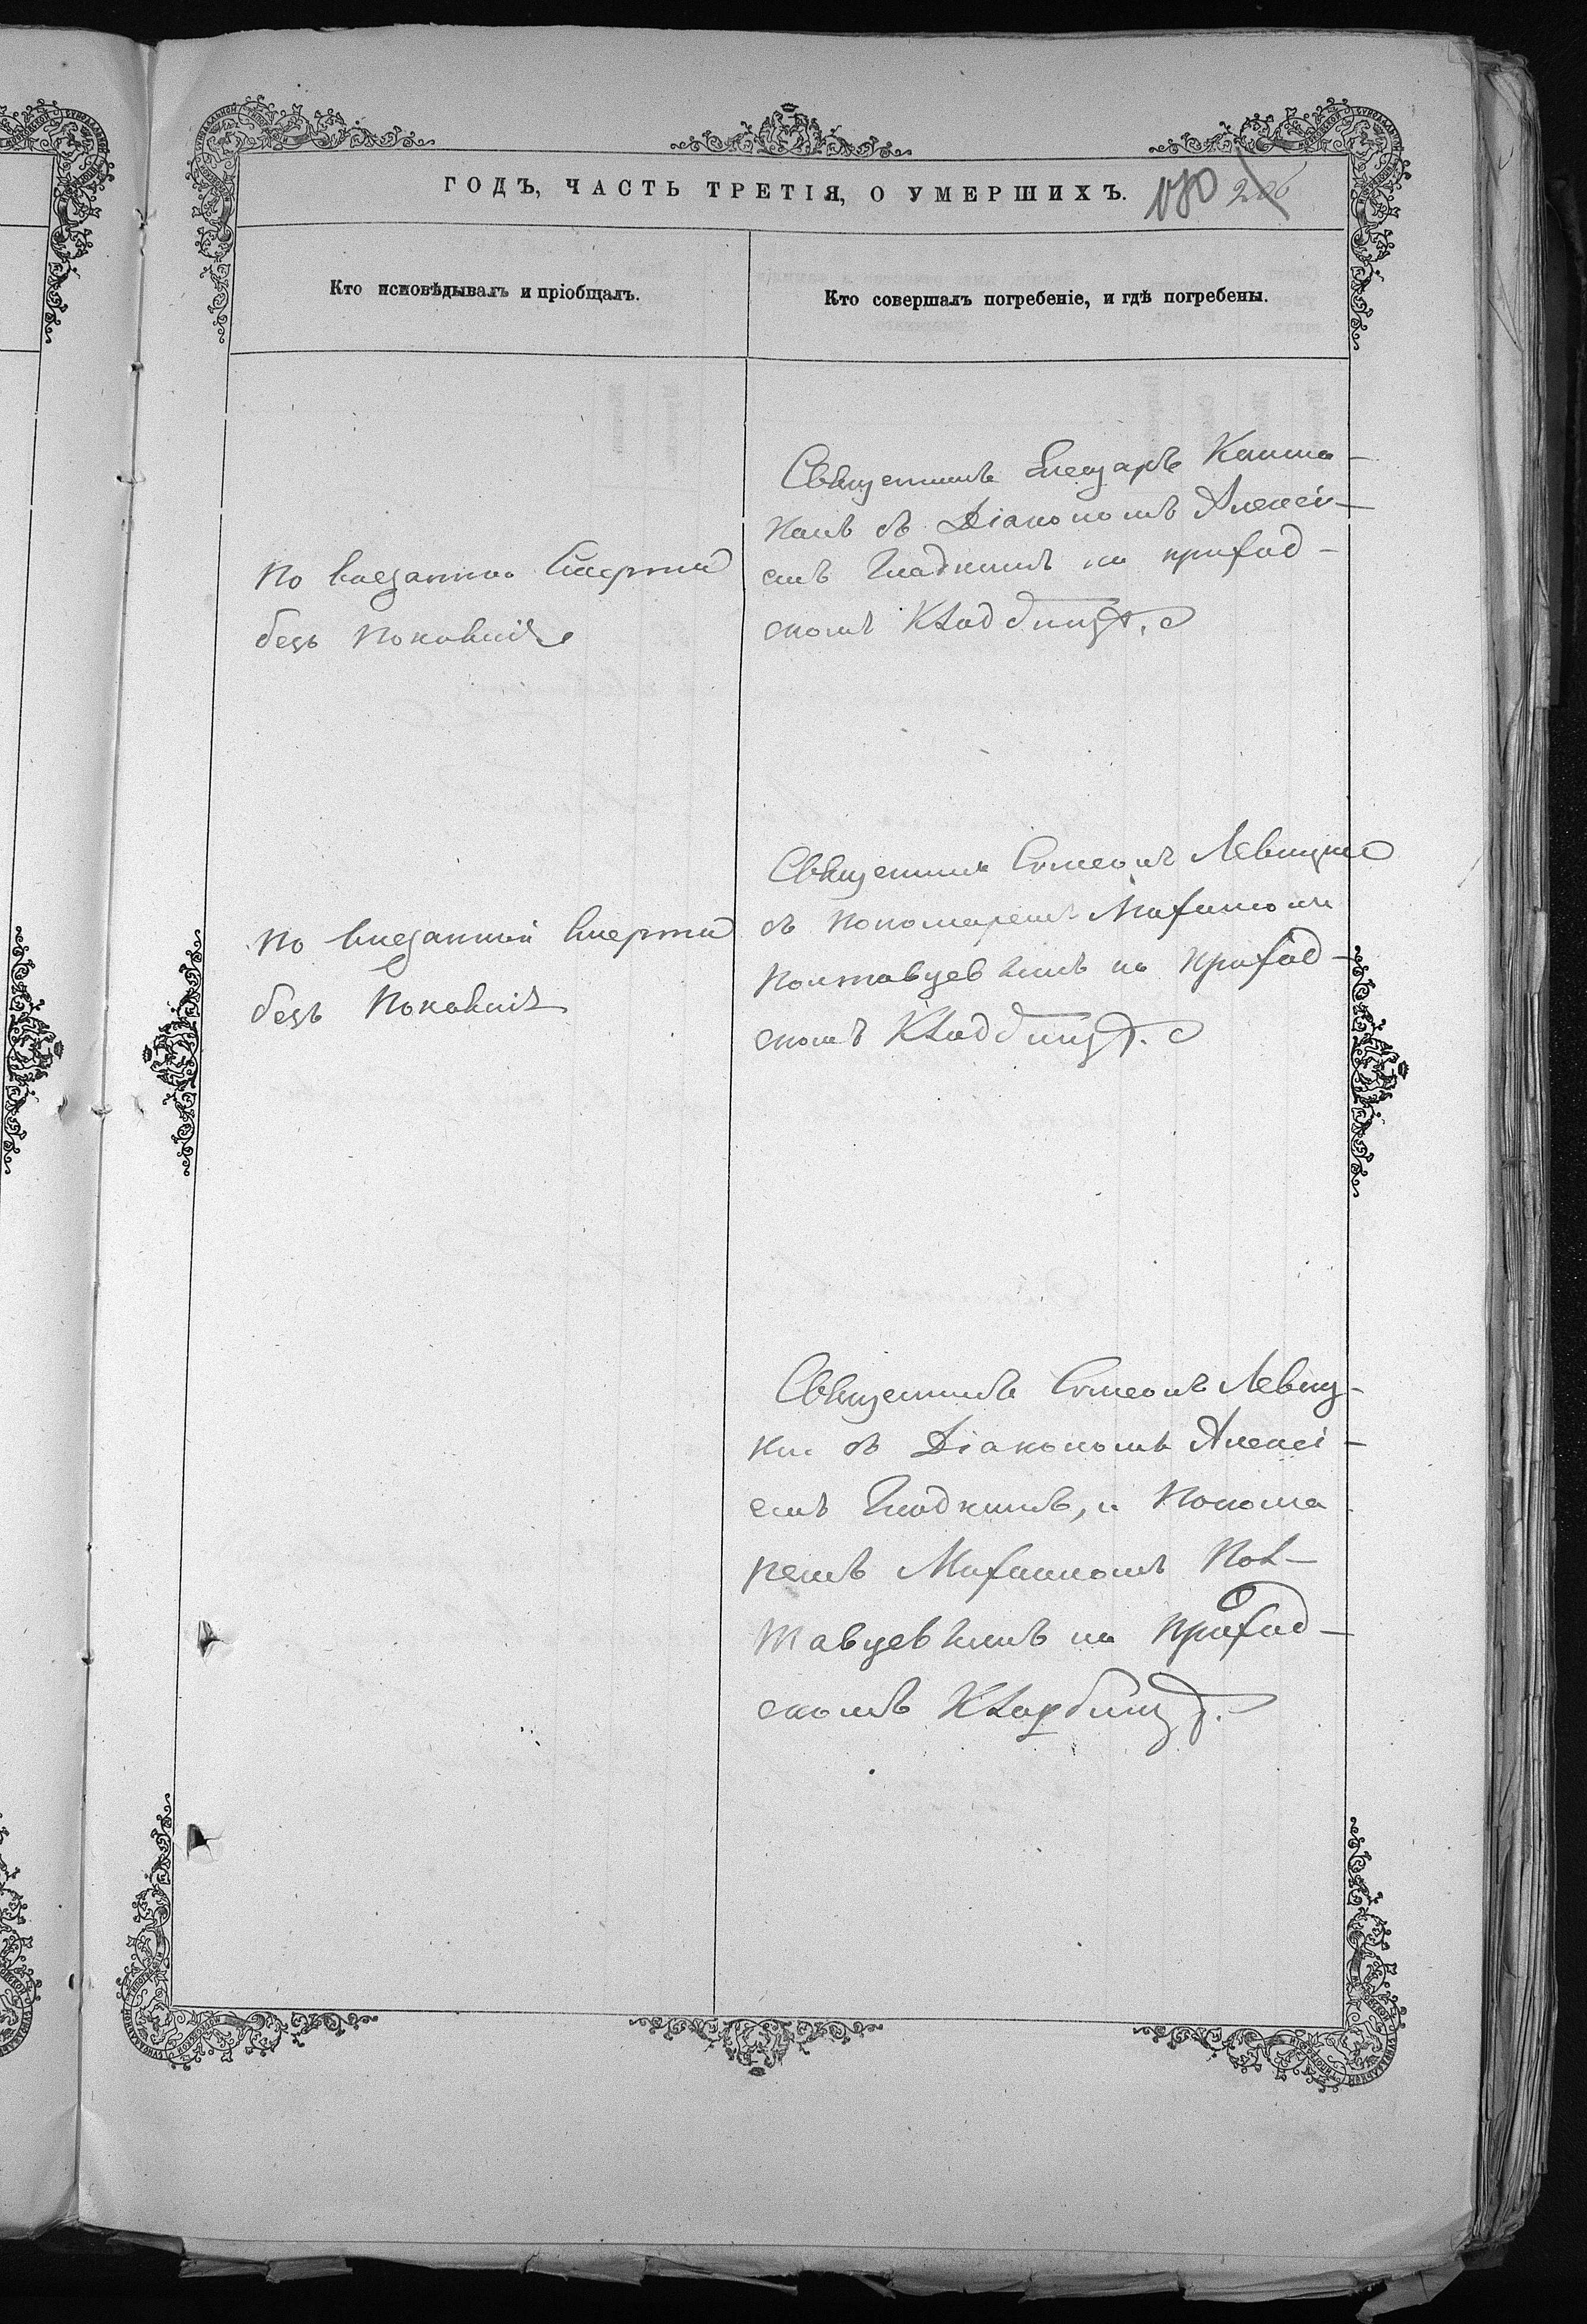 ГОДЪ, ЧАСТЬ ТРЕТІЯ, О УМЕРШИХЪ.
180 206
Кто исповѣдывалъ и пріобщалъ.
Кто совершалъ погребеніе, и гдѣ погребены.
По внезапной Смерти
безъ Покаянія
Священникъ Елеазаръ
съ Діакономъ Алексі-
емъ Гладкимъ на приход-
скомъ Кладбищѣ.
По внезапной Смерти
безъ Покаянія
Священникъ Симеонъ Левицкій
съ Пономаремъ Михаиломъ
Полтавцевымъ на Приход-
скомъ Кладбищѣ.
Священникъ Симеонъ Левиц-
кій съ Діакономъ Алексі-
емъ Гладкимъ, и Понома
ремъ Михаиломъ Пол-
тавцевымъ на Приход-
скомъ Кладбищѣ.